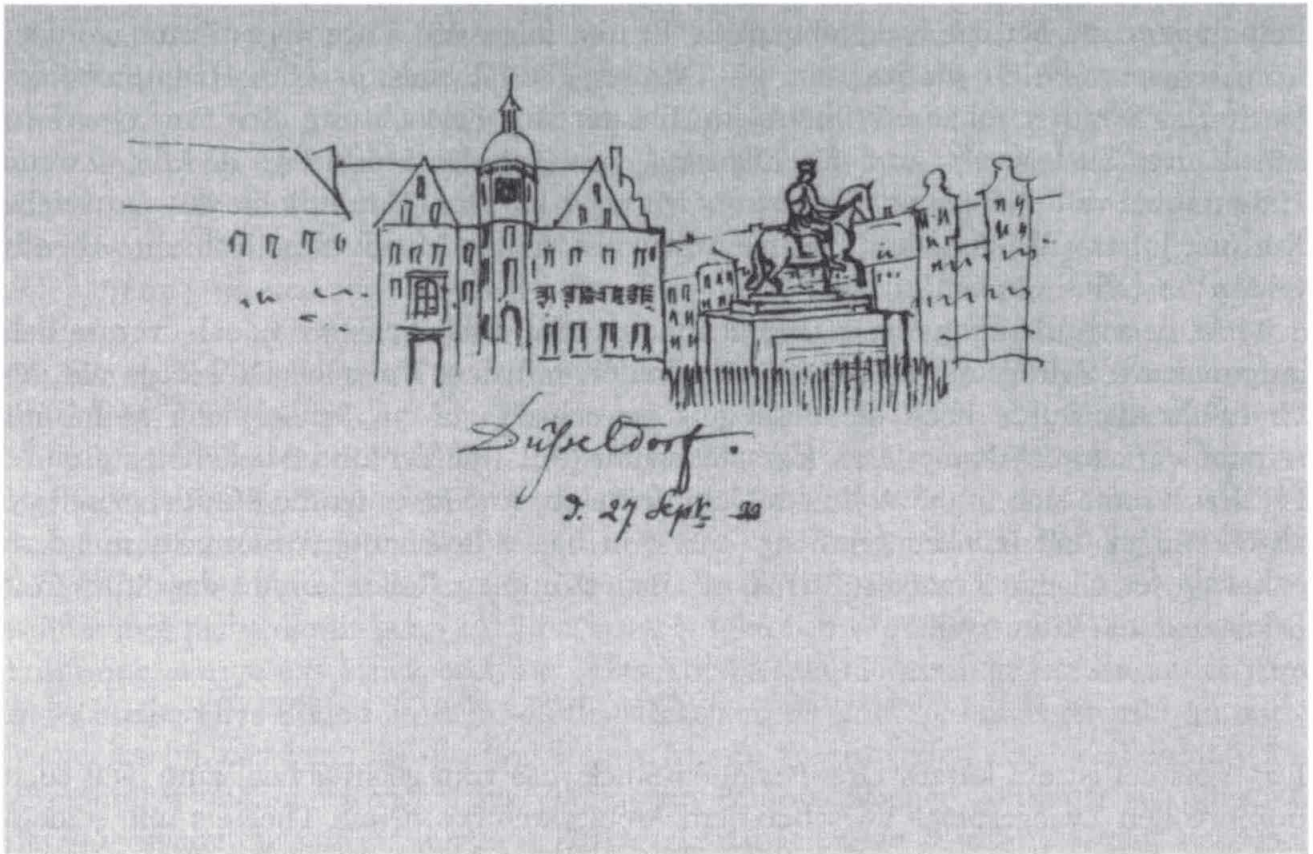 Düsseldorf.
d. 27 Sept.